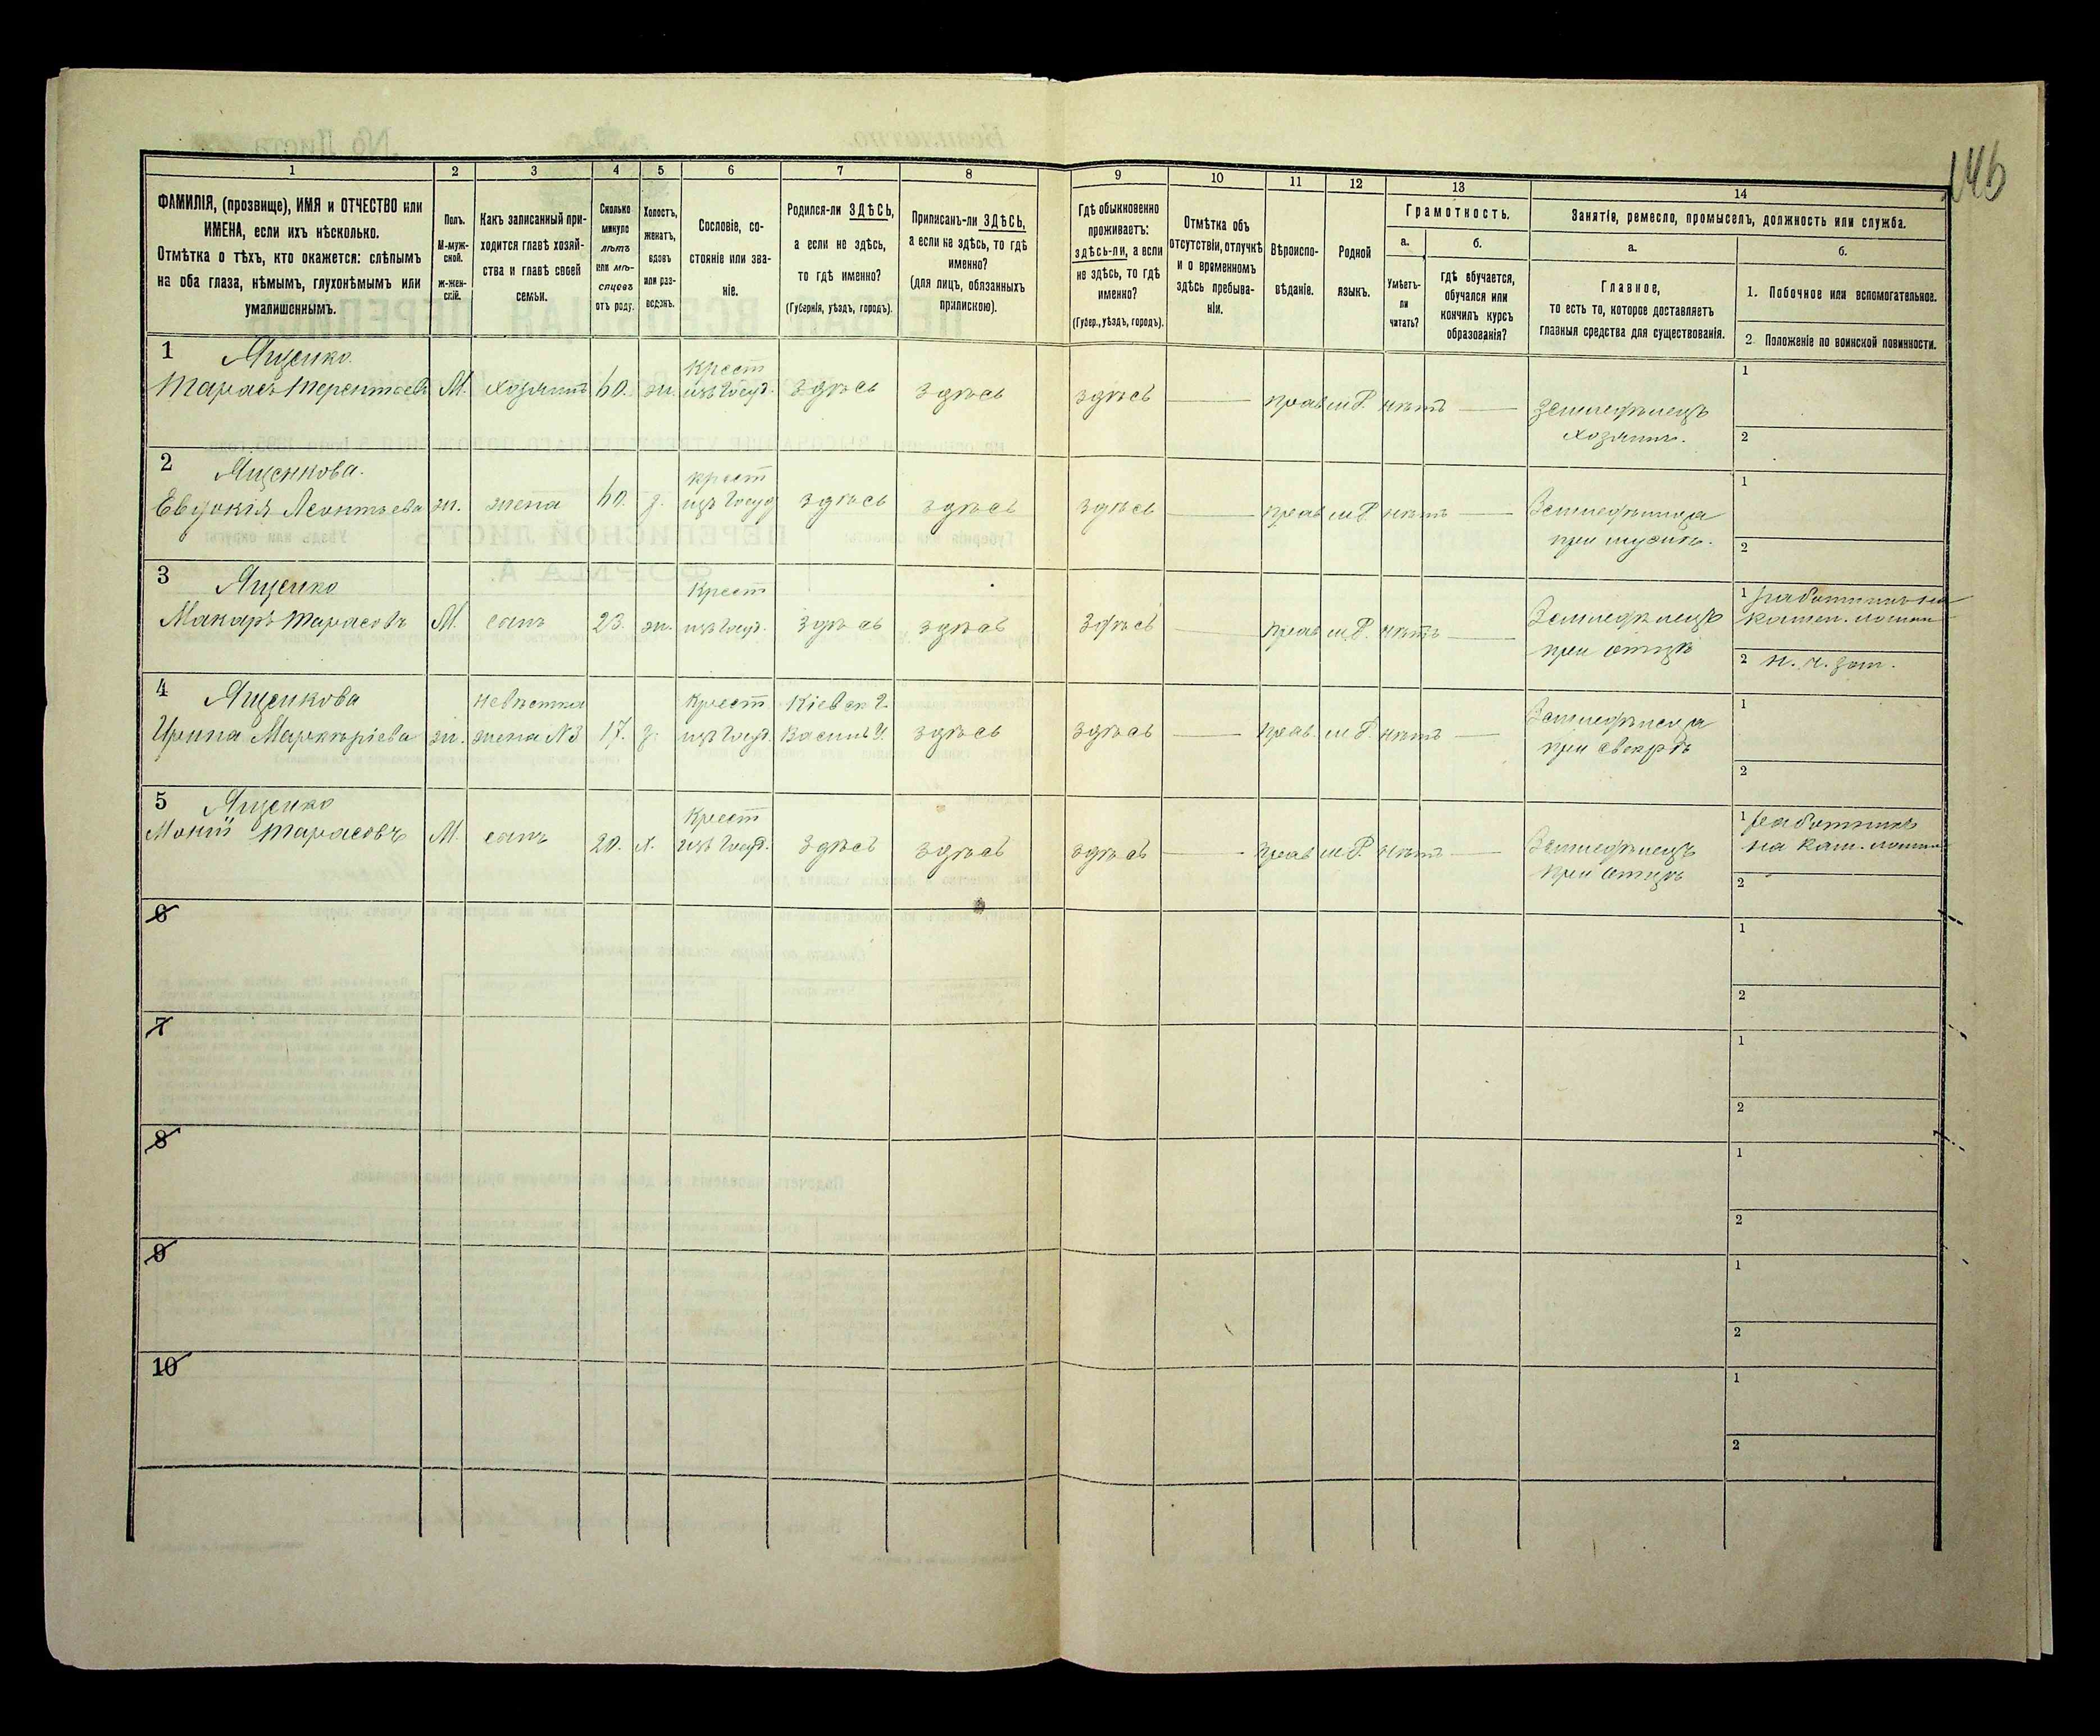 146
1 2 3 4 5 6 7 8 9 10 11 12 13 14
ФАМИЛІЯ, (прозвище), ИМЯ и ОТЧЕСТВО или
ИМЕНА, если ихъ нѣсколько.
Отмѣтка о тѣхъ, кто окажется: слѣпымъ
на оба глаза, нѣмымъ, глухонѣмымъ или
умалишеннымъ.
Полъ.
М-муж-
ской.
ж-жен-
скій.
Какъ записанный при-
ходится главѣ хозяй-
ства и главѣ своей
семьи.
Сколько
минуло
лѣтъ
или мѣ-
сяцевъ
отъ роду.
Холостъ,
женатъ,
вдовъ
или раз-
веденъ.
Сословіе, со-
стояніе или зва-
ніе.
Родился-ли ЗДѢСЬ,
а если не здѣсь,
то гдѣ именно?
(Губернія, уѣздъ, городъ).
Приписанъ-ли ЗДѢСЬ,
а если не здѣсь, то гдѣ
именно?
(для лицъ, обязанныхъ
припискою).
Гдѣ обыкновенно
проживаетъ:
здѣсь-ли, а если
не здѣсь, то гдѣ
именно?
(Губер., уѣздъ, городъ).
Отмѣтка объ
отсутствіи, отлучкѣ
и о временномъ
здѣсь пребыва-
ніи.
Вѣроиспо-
вѣданіе.
Родной
языкъ.
Грамотность.
а.
Умѣетъ-
ли
читать?
б.
гдѣ обучается,
обучался или
кончилъ курсъ
образованія?
Занятіе, ремесло, промыселъ, должность или служба.
а.
Главное,
то есть то, которое доставляетъ
главныя средства для существованія.
б.
1. Побочное или вспомогательное.
2. Положеніе по воинской повинности.
1 Ященко Крест 1
Тарасъ Терентьевъ М. хозяинъ 60. ж. изъ Госуд. здѣсь здѣсь здѣсь прав м.Р. нѣтъ Земледѣлецъ
хозяинъ. 2
2 Ященкова. крест 1
Евдокія Леонтьева ж. жена 60. з. изъ Госуд здѣсь здѣсь здѣсь прав м.Р. нѣтъ Земледѣлица
при мужѣ. 2
3 Ященко Крест 1 работникъ на
Макаръ Тарасовъ М. сынъ 23. ж. изъ Госуд. здѣсь здѣсь здѣсь прав м.Р. нѣтъ Земледѣлецъ
при отцѣ 2
4 Ященкова невѣстка Крест Кіевск г. 1
жена №3 17. з. изъ Госуд. Васильк У. здѣсь здѣсь прав. м.Р. нѣтъ Земледѣлица
при свекрѣ 2
5 Ященко Крест 1 работникъ
Мокій Тарасовъ М. сынъ 20. х. изъ Госуд. здѣсь здѣсь здѣсь прав м.Р. нѣтъ Земледѣлецъ
при отцѣ 2
6 1
2
7 1
2
8 1
2
9 1
2
10 1
2